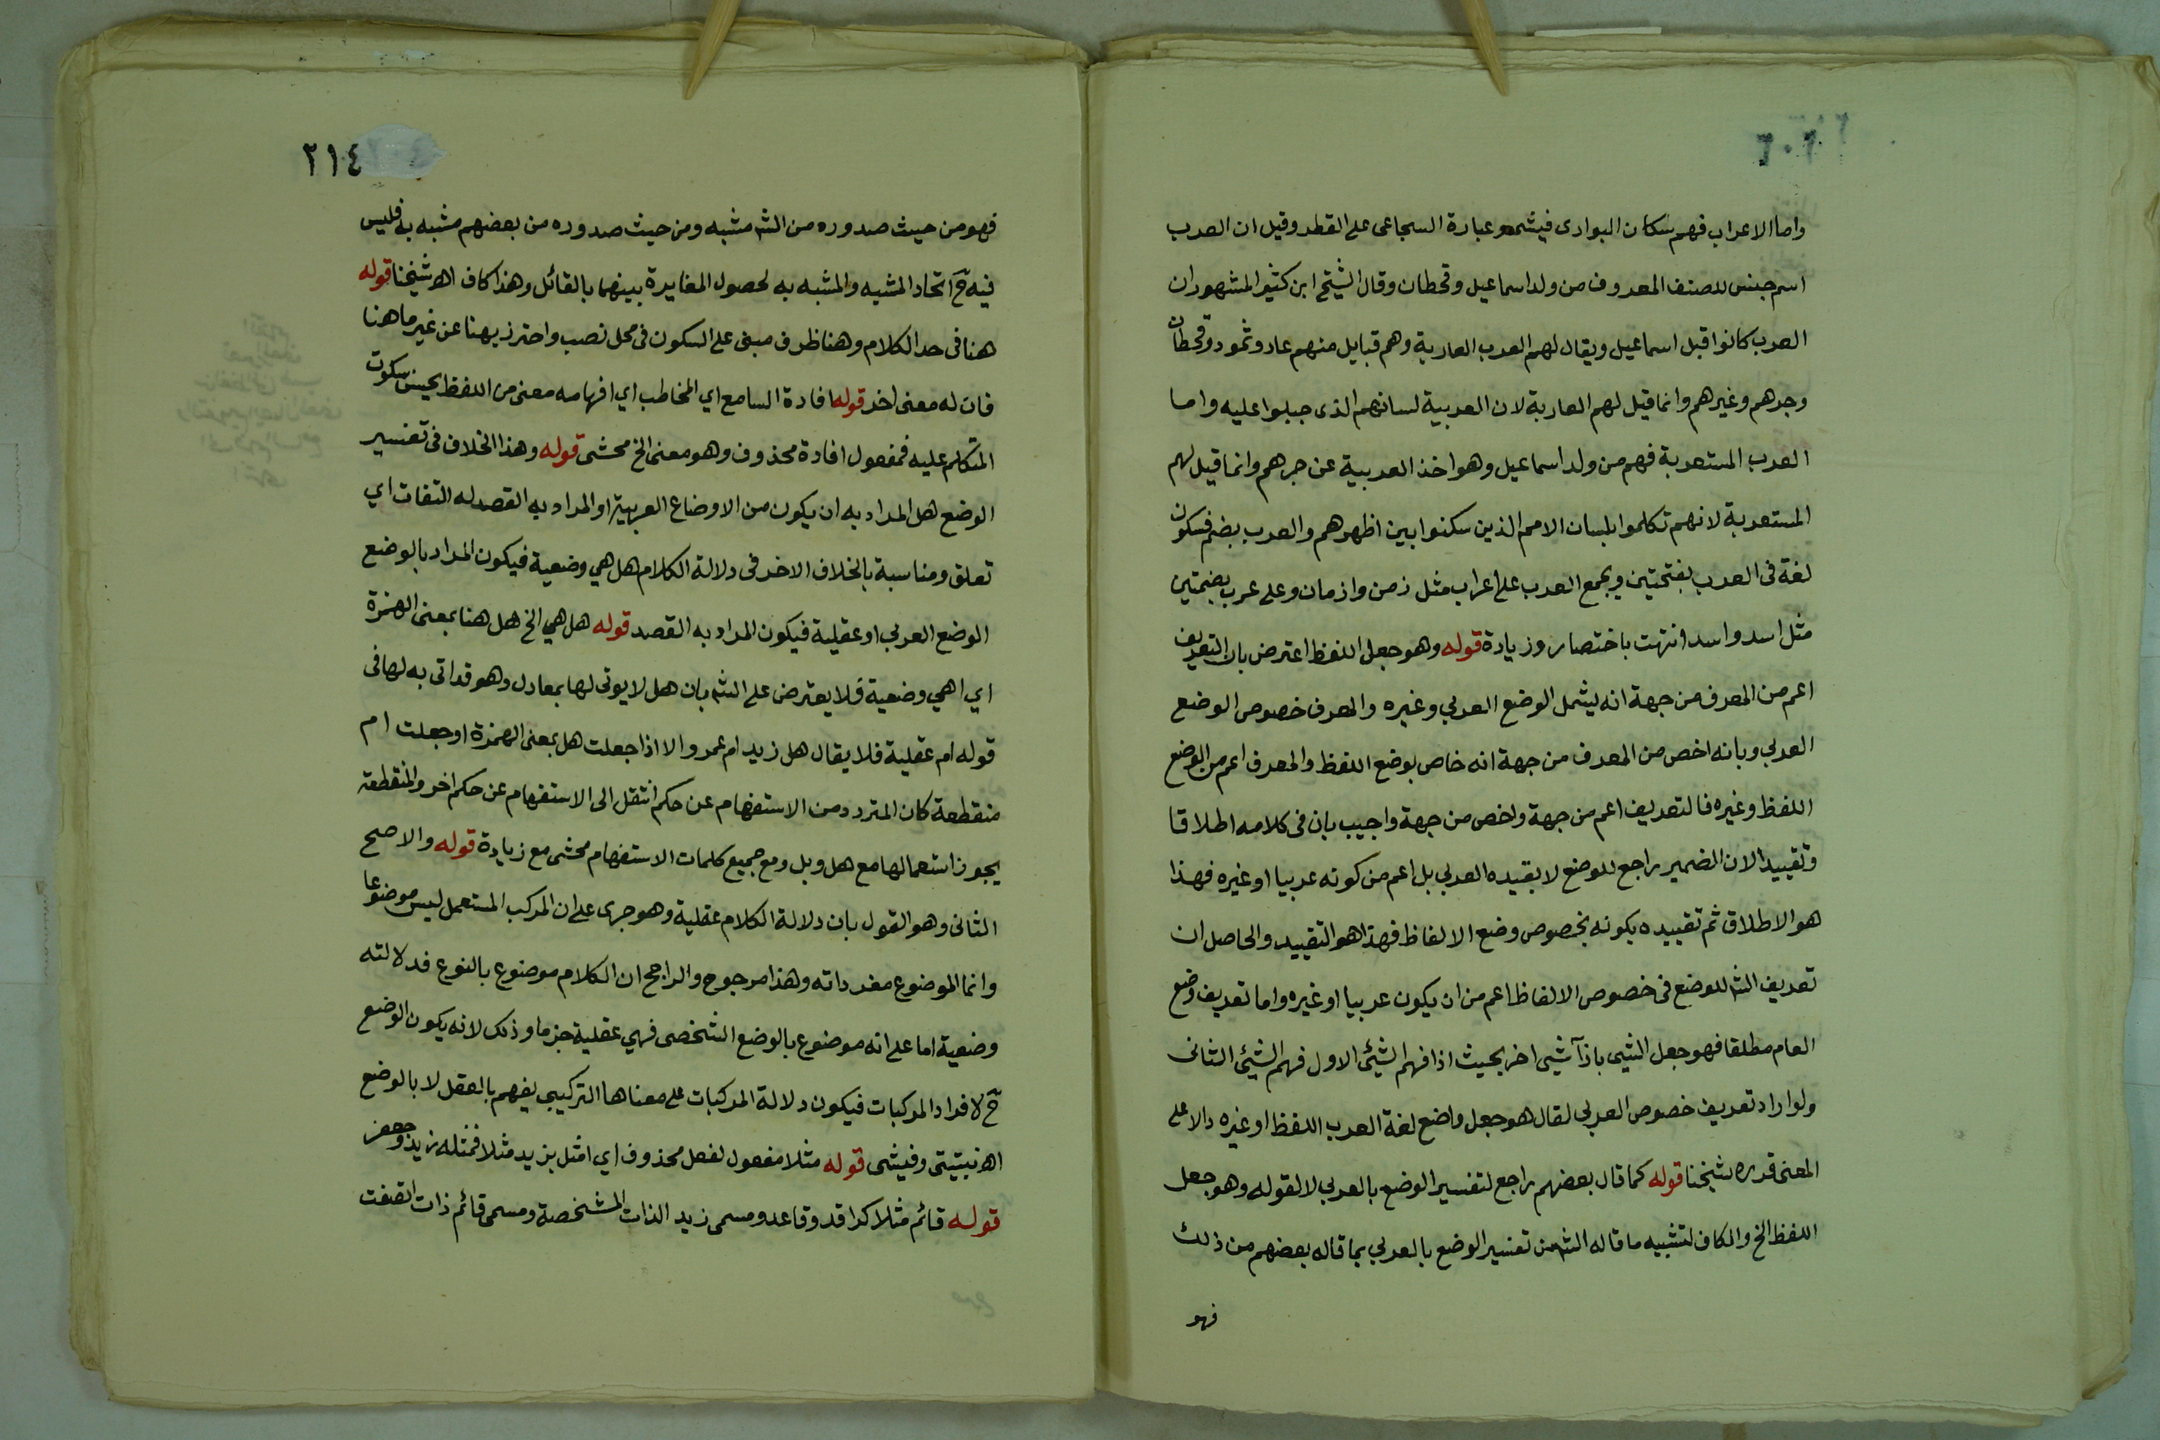 واما الاعراب فهم سكان البوادى فيشمه وعبارة السجاعى على القطر وقيل ان العرب
اسم جنس للصنف المعروف من ولد اسماعيل وقحطان وقال الشيخ ابن كثير المشهور ان
العرب كانوا قبل اسماعيل ويقال لهم العرب العاربة وهم قبايل منهم عاد وثمود وقحطان
وجرهم وغيرهم وانما قيل لهم العاربة لان العربية لسانهم الذى جبلوا عليه واما
العرب المستعربة فهم من ولد اسماعيل وهو اخذ العربية عن جرهم وانما قيل لهم
المستعربة لانهم تكلموا بلسان الامم الذين سكنوا بين اظهرهم والعرب بضم فسكون
لغة فى العرب بفتحتين ويجمع العرب على اعراب مثل زمن وازمان وعلى عرب بضمتين
مثل اسد واسد انتهت باختصار وزيادة قوله وهو جعل اللفظ اعترض بان التعريف
اعم من المعرف من جهة انه يشمل الوضع العربي وغيره والمعرف خصوص الوضع
العربي وبانه اخص من المعرف من جهة انه خاص بوضع اللفظ والمعرف اعم من الوضع
اللفظ وغيره فالتعريف اعم من جهة واخص من جهة واجيب بان فى كلامه اطلاقا
وتقييدا لان الضمير راجع للوضع لا بقيده العربي بل اعم من كونه عربيا او غيره فهذا
هو الاطلاق ثم تقييده بكونه بخصوص وضع الالفاظ فهذا هو التقييد والحاصل ان
تعريف الش للوضع فى خصوص الالفاظ اعم من ان يكون عربيا او غيره واما تعريف وضع
العام مطلقا فهو جعل الشيى بازآ شيى اخر بحيث اذا فهم الشيئ الاول فهم الشيئ الثانى
ولو اراد تعريف خصوص العربي لقال هو جعل واضع لغة العرب اللفظ او غيره دالا على
المعنى قرره شيخنا قوله كما قال بعضهم راجع لتفسير الوضع بالعربي لا لقوله وهو جعل
اللفظ الخ والكاف لتشبيه ما قاله الش من تفسير الوضع بالعربي بما قاله بعضهم من ذلك
فهو
٢١٤
فهو من حيث صدوره من الش مشبه ومن حيث صدوره من بعضهم مشبه به فليس
فيه ح اتحاد المشبه والمشبه به لحصول المغايرة بينهما بالقائل وهذا كاف اه شيخنا قوله
هنا فى حد الكلام وهنا ظرف مبنى على السكون فى محل نصب واحترز بهنا عن غير ما هنا
فان له معنى اخر قوله افادة السامع اي المخاطب اي افهامه معنى من اللفظ يحسن سكوت
المتكلم عليه فمفعول افادة محذوف وهو معنى الخ محشى قوله وهذا الخلاف فى تفسير
الوضع هل المراد به ان يكون من الاوضاع العربية او المراد به القصد له التفات اي
تعلق ومناسبة بالخلاف الاخر فى دلالة الكلام هل هي وضعية فيكون المراد بالوضع
الوضع العربي او عقلية فيكون المراد به القصد قوله هل هي الخ هل هنا بمعنى الهمزة
اي اهي وضعية فلا يعترض على الش بان هل لا يوتى لها بمعادل وهو قد اتى به لها فى
قوله ام عقلية فلا يقال هل زيد ام عمرو الا اذا جعلت هل بمعنى الهمزة او جعلت ام
منقطعة كان المتردد من الاستفهام عن حكم انتقل الى الاستفهام عن حكم اخر والمنقطعة
يجوز استعمالها مع هل وبل ومع جميع كلمات الاستفهام محشى مع زيادة قوله والاصح
الثانى وهو القول بان دلالة الكلام عقلية وهو جرى على ان المركب المستعمل ليس موضوعا
وانما الموضوع مفرداته وهذا مرجوح والراجح ان الكلام موضوع بالنوع فدلالته
وضعية اما على انه موضوع بالوضع الشخصى فهي عقلية جزما وذلك لانه يكون الوضع
ح لافراد المركبات فيكون دلالة المركبات على معناها التركيبي يفهم بالعقل لا بالوضع
اه نبتيتى وفيشى قوله مثلا مفعول لفعل محذوف اي امثل بزيد مثلا فمثله زيد وجعفر
قوله قائم مثلا كراقد وقاعد ومسمى زيد الذات المشخصة ومسمى قائم ذات اتصفت